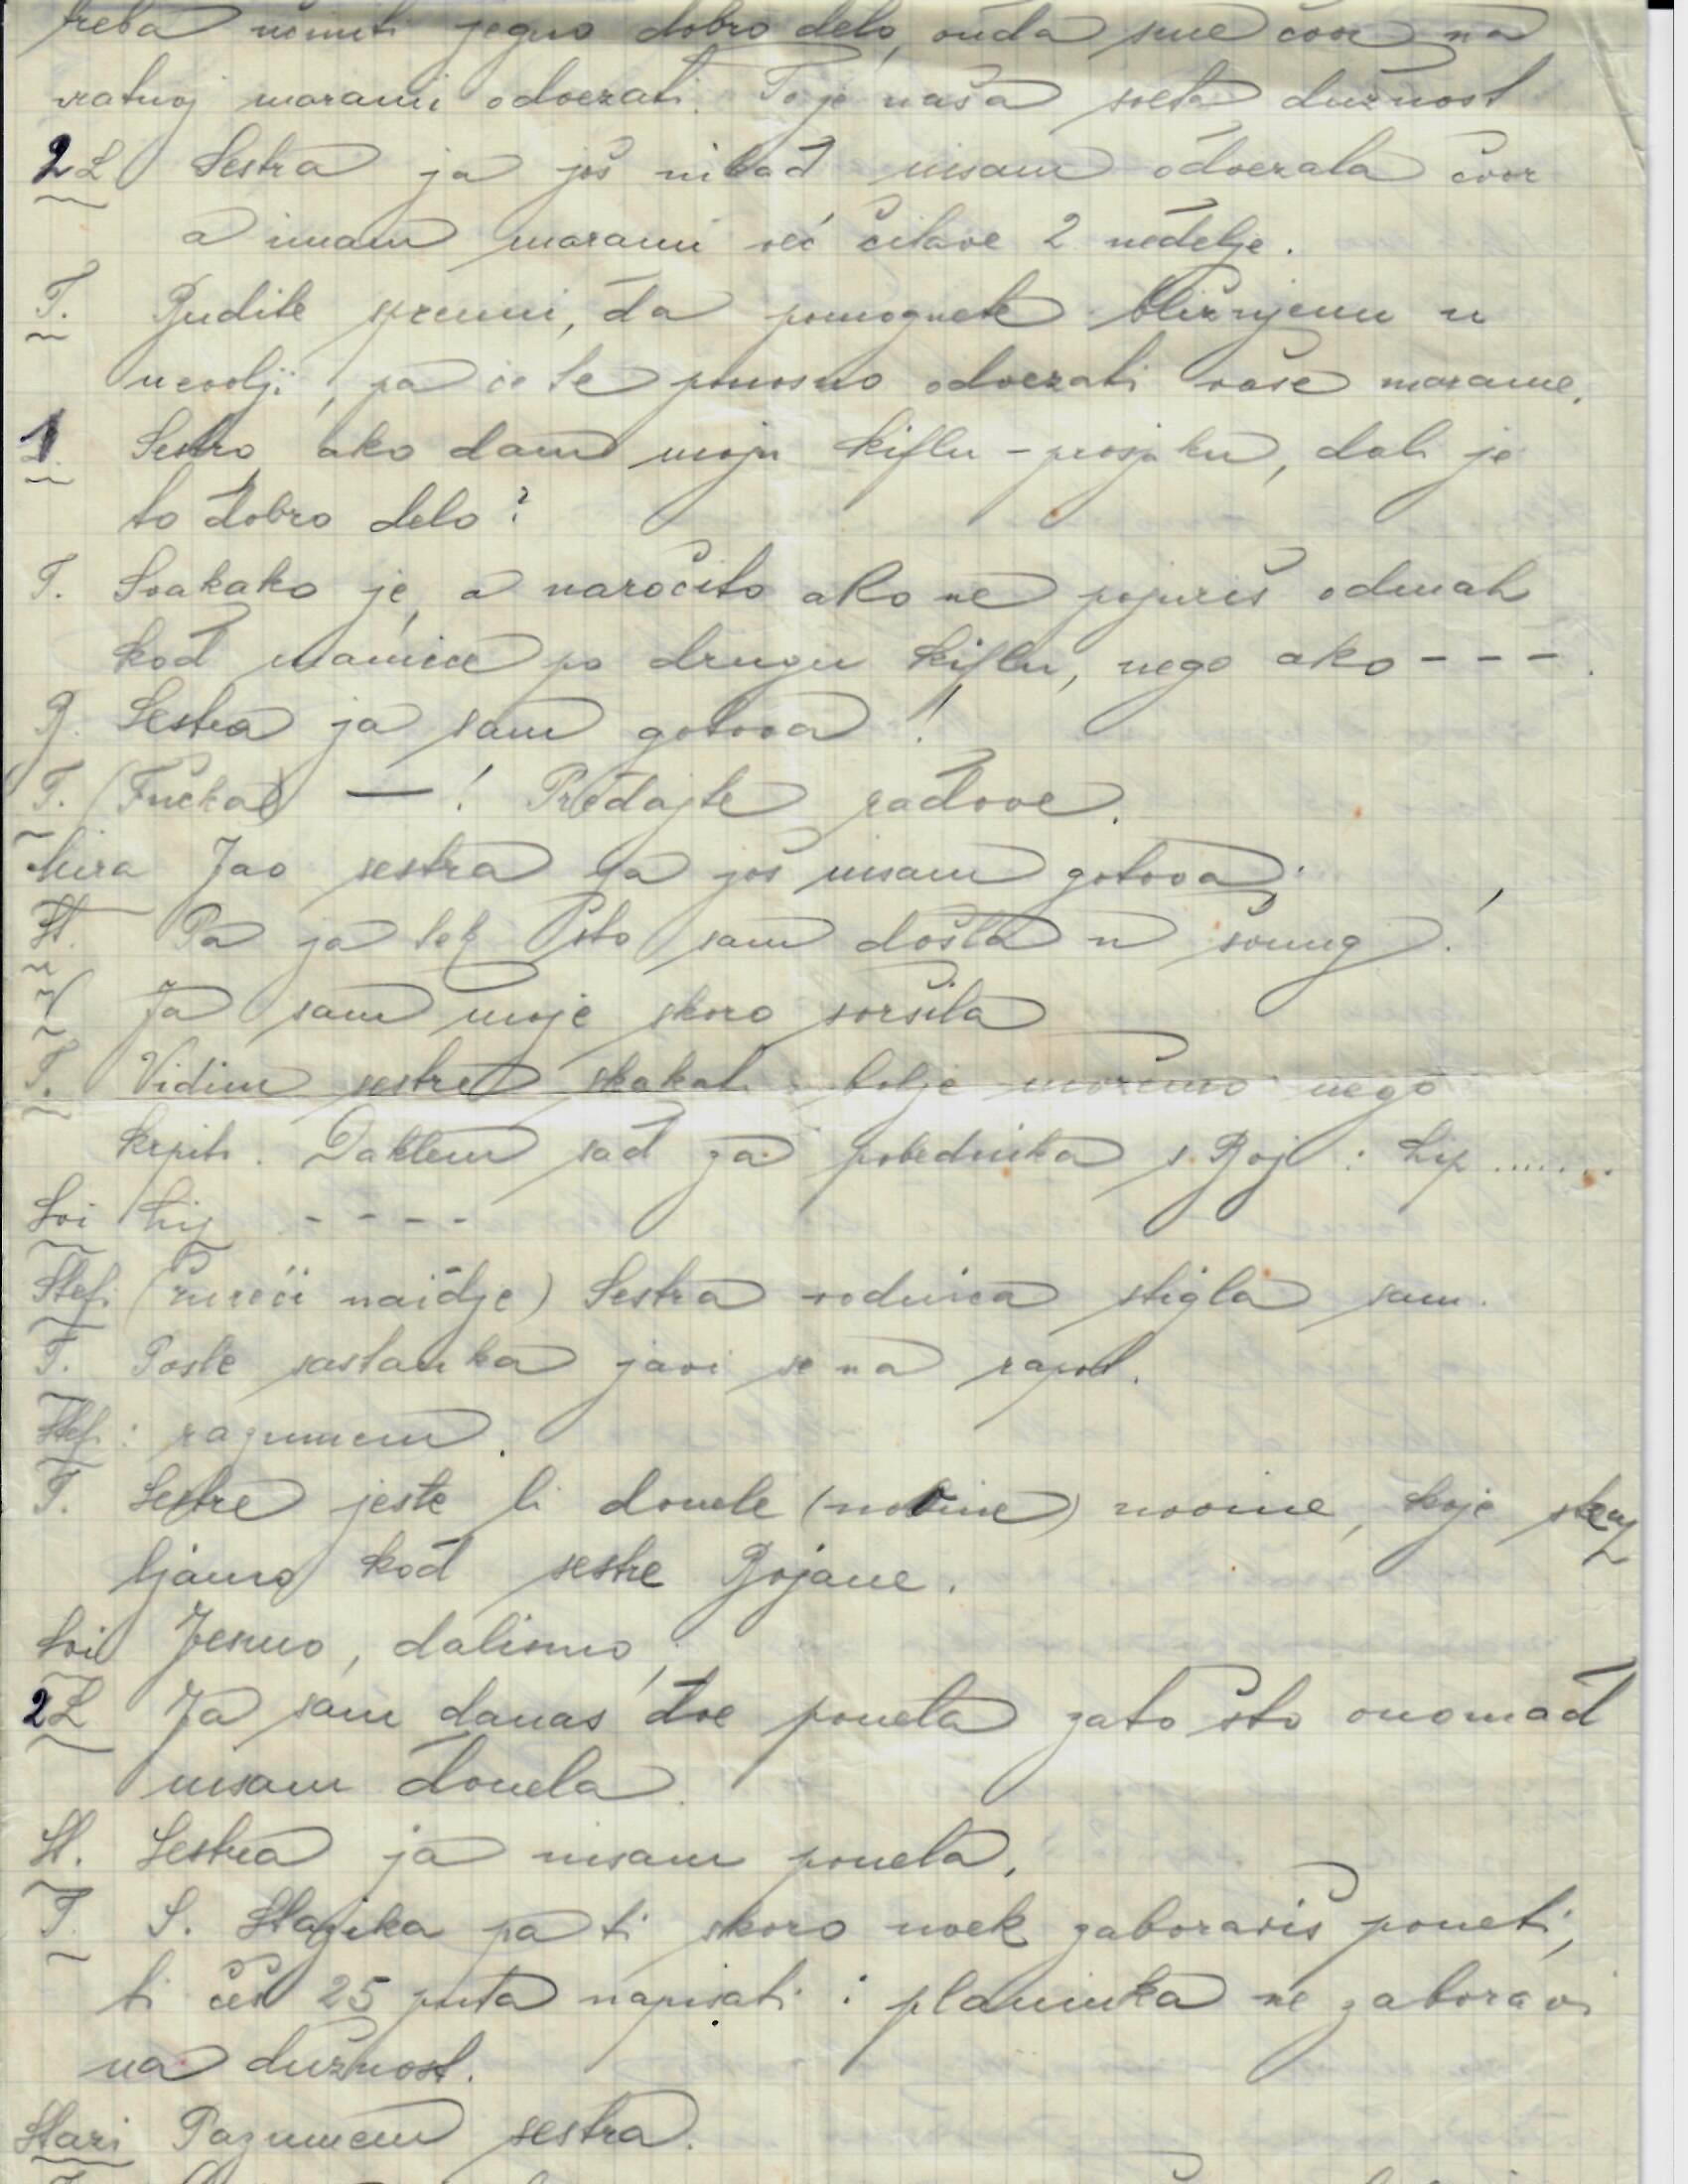 treba učiniti jegno dobro delo, onda sme čvor na
vratnoj marami odvezati. To je naša sveta dužnost
2 L Sestra ja još nikad nisam odvezala čvor
a imam maramu već čitave 2 nedelje.
T. Budite spremni, da pomognete bližnjemu u
nevolji, pa ćete ponosno odvezati vaše marame.
1 Sestro ako dam moju kiflu - prosjaku, dali je
to dobro delo?
T. Svakako je, a naročito ako ne pojuriš odmah
kod mamice po drugu kiflu, nego ako - - - .
B. Sestra ja sam gotova!
T. (Fućka) — ! Predajte radove.
Mira Jao sestra ja još nisam gotova;
St. Pa ja tek što sam došla u švung!
Ja sam moje skoro svršila
T. Vidim sestre skakati bolje možemo nego
krpiti. Daklem sad za pobednika s. Boj : hip .......
Svi hip - - - -
Stef. (žureći naidje) Sestra vodnica stigla sam.
T. Posle sastanka javi se na raport.
Stef : razumem.
T. Sestre jeste li donele (novine) novine, koje skup
ljamo kod sestre Bojane.
Svi Jesmo, dalismo,
2 L Ja sam danas dve ponela zato što onomad
nisam donela.
St. Sestra ja nisam ponela.
T S. Stazika pa ti skoro uvek zaboraviš poneti,
ti ćeš 25 puta napisati : planinka ne zaboravi
na dužnost.
Stazi Razumem sestra.